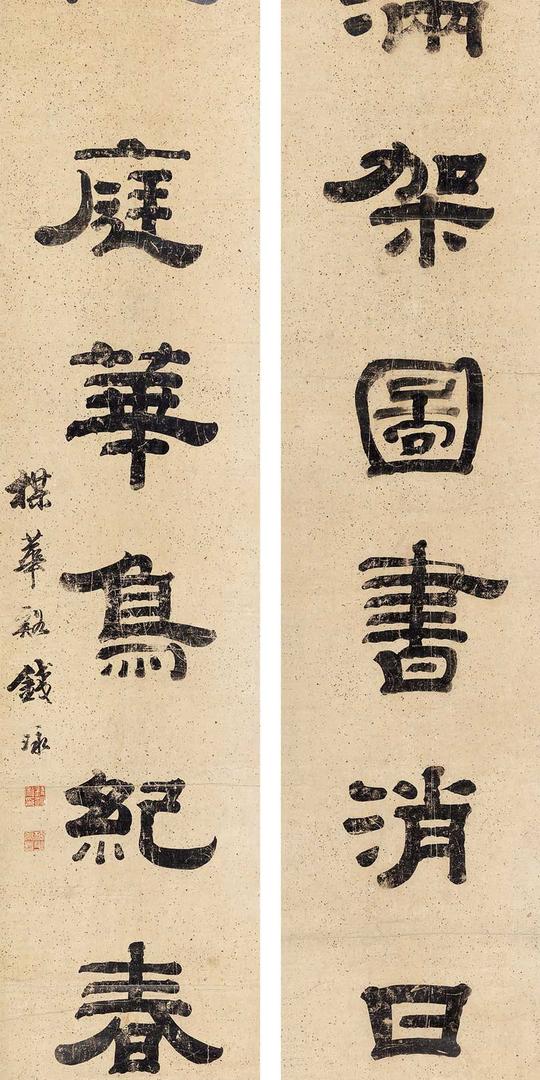 滿架圖書消日
庭華鳥紀春
楳華谿錢泳